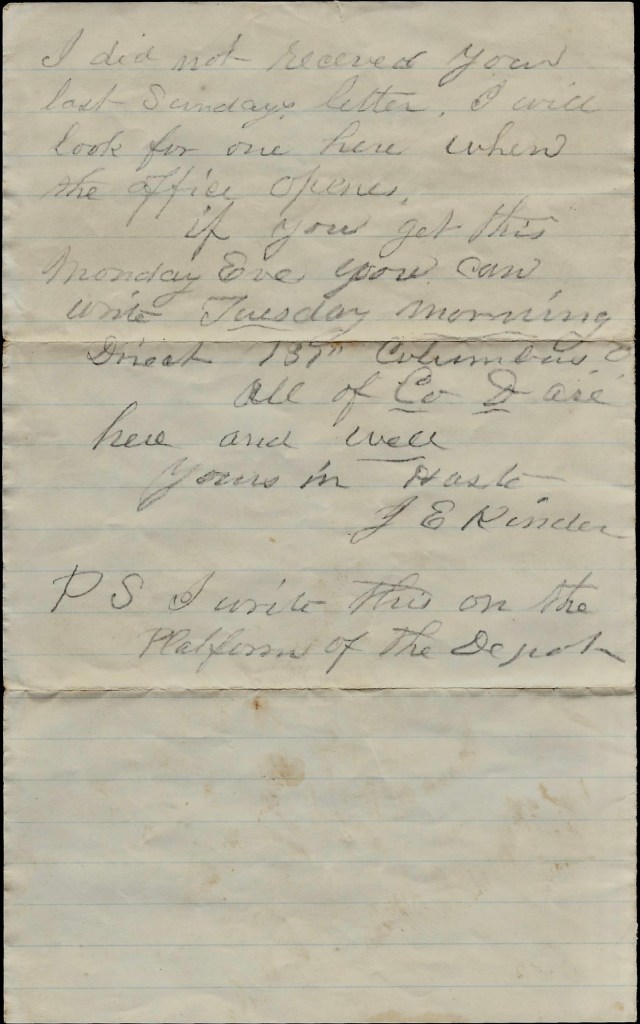 I did not receved your
last Sundays letter. I will
look for one here when
the office openes.
if you get this
Monday Eve you can
write Tuesday morning
Direct 137th Columbus O
All of Co D are
here and well
Yours in Haste
J E Kinder
P S I write this on the
Platform of the Depot